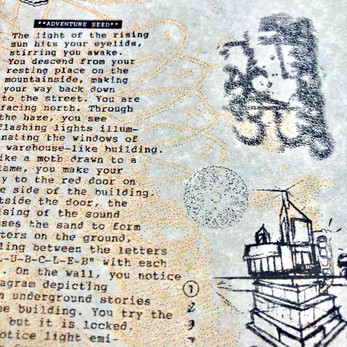 **ADVENTURE SEED**
The light of the rising
sun hits your eyelids,
stirring you awake.
You descend from your
resting place on the
mountainside, making
your way back down
to the street. You are
facing north. Through
the haze, you see
flashing lights illum-
inating the windows of
warehouse-like building.
ike a moth drawn to a
lame, you make your
y to the red door on
e side of the building.
tside the door, the
ising of the sound
ses the sand to form
ters on the ground,
ling between the letters
L-U-B-C-L-E-B" with each
. On the wall, you notice
agram depicting
n underground stories
he building. You try the
but it is locked.
otice light emi-
1
2
3